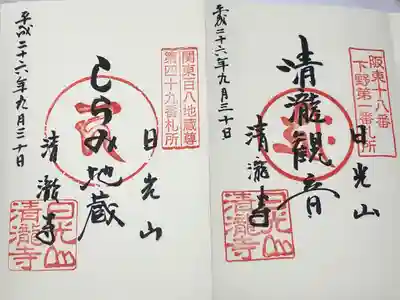 阪東十八番
下野第一番札所
日光山
清瀧観音
清瀧寺
日光山
清瀧寺
平成二十六年九月三十日
関東百八地蔵尊
第四十九番札所
日光山
しらみ地蔵
清瀧寺
日光山
清瀧寺
平成二十六年九月三十日